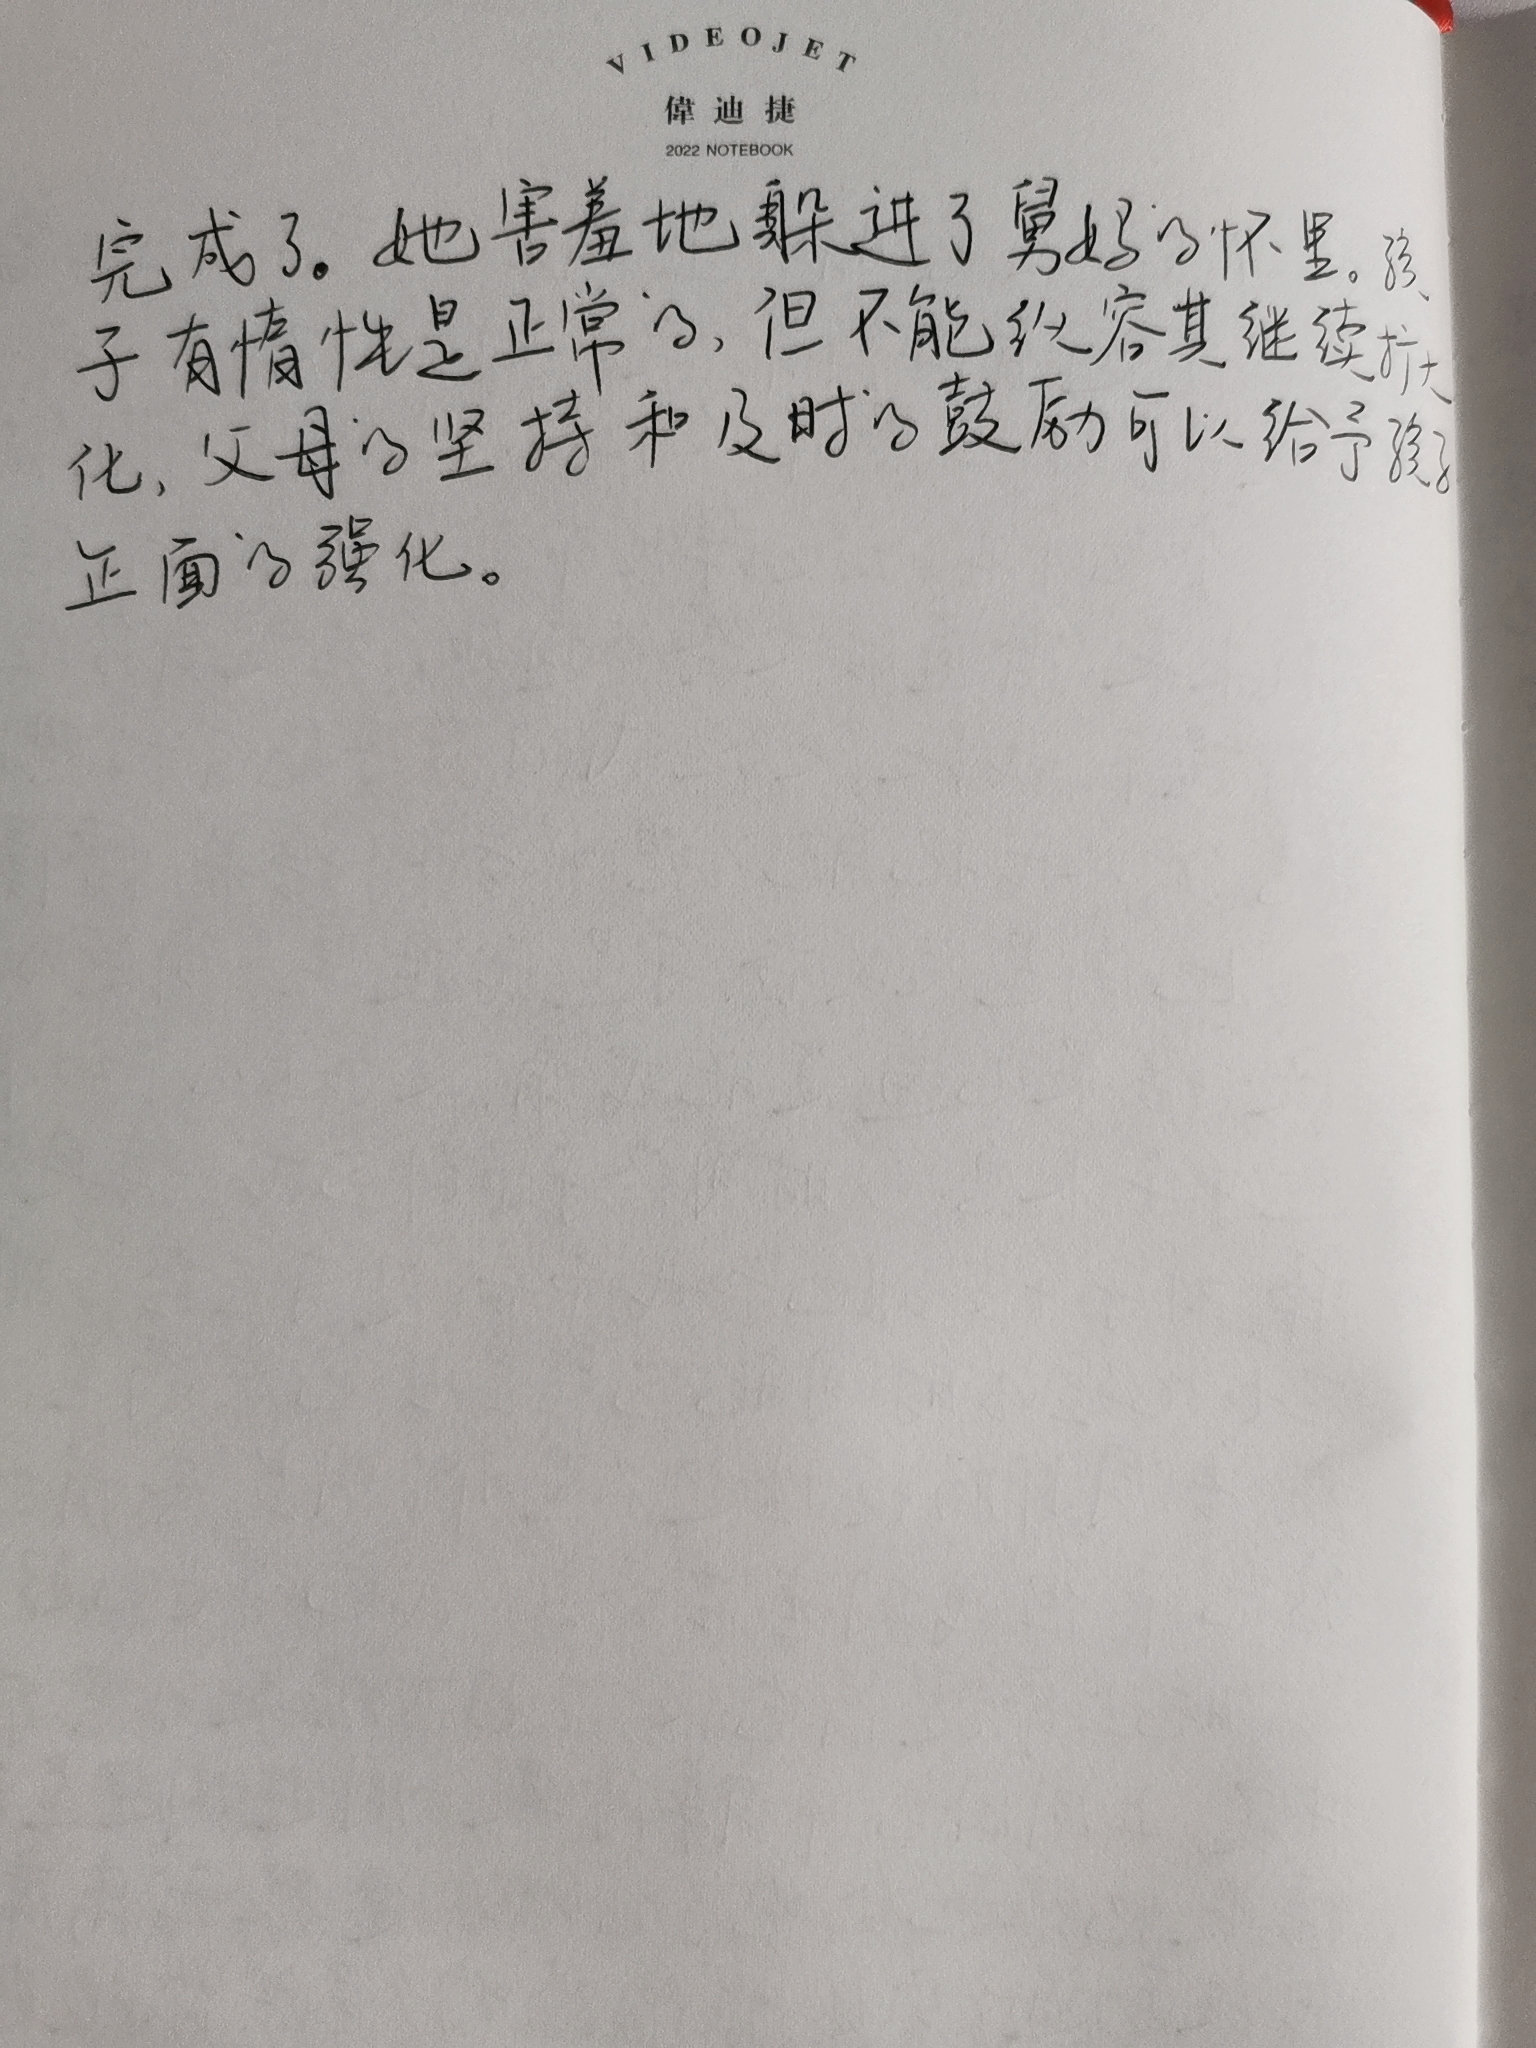 VIDEOJET
偉迪捷
2022 NOTEBOOK
完成了。她害羞地躲进了舅妈的怀里。孩
子有惰性是正常的,但不能纵容其继续扩大
化,父母的坚持和及时的鼓励可以给予孩子
正面的强化。